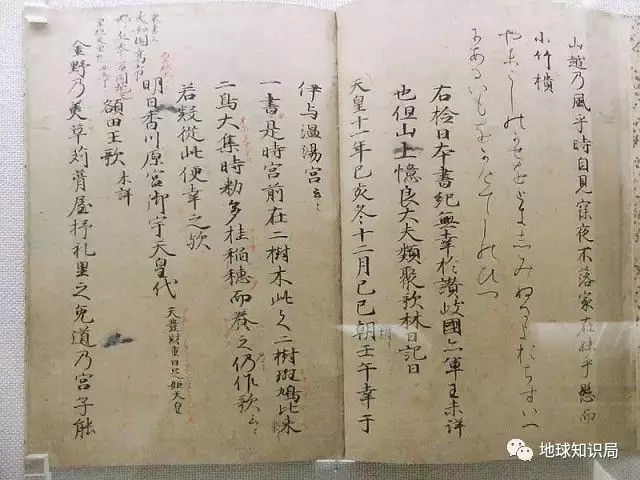 山越乃風乎時自見寐夜不落家在妹乎懸而
小竹櫃
やまこしのかせをときしみぬるよおちすいへ
にあるいもをかけてしのひつ
右檢日本書紀無幸於讃岐國亦軍王未詳
也但山上憶良大夫類聚歌林日記曰
天皇十一年己亥冬十二月己巳朔壬午幸于
伊与温湯宮云々
一書是時宮前在二樹木此之二樹斑鳩比米
二鳥大集時勅多桂稲穂而養之仍作歌云々
若疑從此便幸之歟
明日香川原宮御宇天皇代 天豊財重日足姫天皇
額田王歌 未詳
金野乃美草苅葺屋杼礼里之兎道乃宮子能
地球知识局